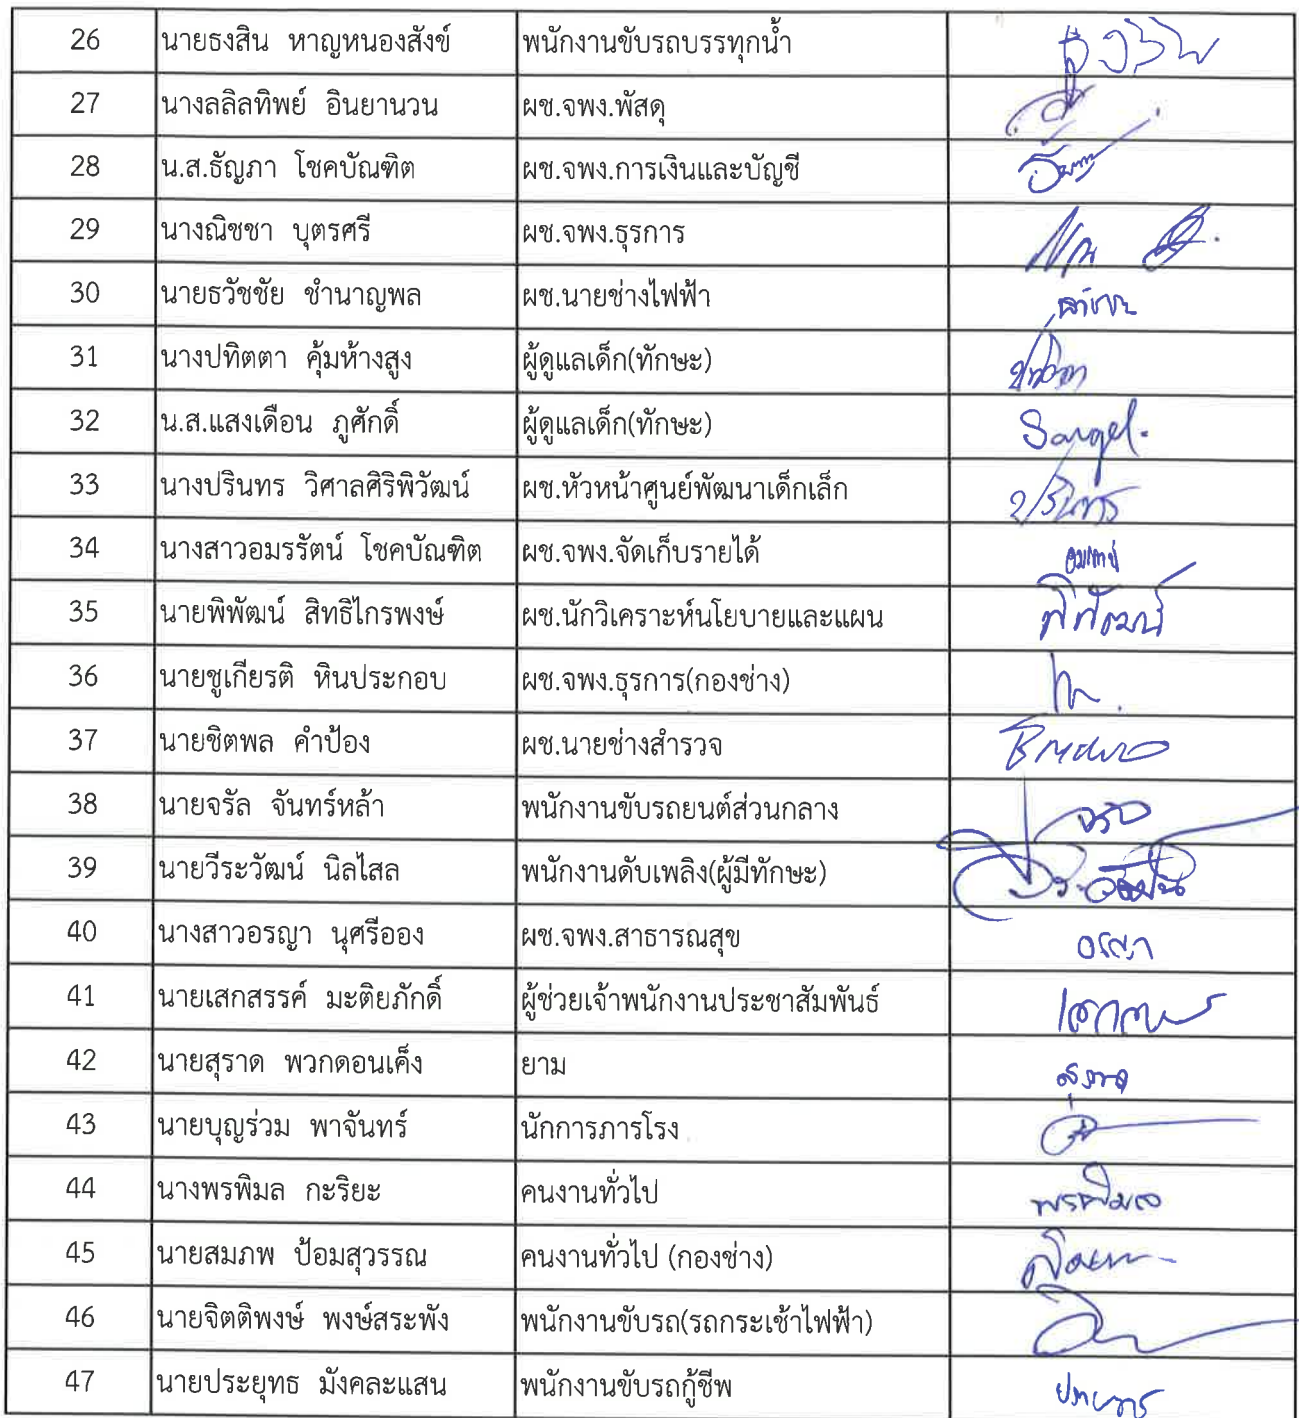 26 นายธงสิน หาญหนองสังข์ พนักงานขับรถบรรทุกน้ำ
27 นางลลิลทิพย์ อินยานวน ผช.จพง.พัสดุ
28 น.ส.ธัญภา โชคบัณฑิต ผช.จพง.การเงินและบัญชี
29 นางณิชชา บุตรศรี ผช.จพง.ธุรการ
30 นายธวัชชัย ชำนาญพล ผช.นายช่างไฟฟ้า
31 นางปทิตตา คุ้มห้างสูง ผู้ดูแลเด็ก(ทักษะ)
32 น.ส.แสงเดือน ภูศักดิ์ ผู้ดูแลเด็ก(ทักษะ)
33 นางปรินทร วิศาลศิริพิวัฒน์ ผช.หัวหน้าศูนย์พัฒนาเด็กเล็ก ปรินทร
34 นางสาวอมรรัตน์ โชคบัณฑิต ผช.จพง.จัดเก็บรายได้
35 นายพิพัฒน์ สิทธิไกรพงษ์ ผช.นักวิเคราะห์นโยบายและแผน พิพัฒน์
36 นายชูเกียรติ หินประกอบ ผช.จพง.ธุรการ(กองช่าง)
37 นายชิตพล คำป้อง ผช.นายช่างสำรวจ
38 นายจรัล จันทร์หล้า พนักงานขับรถยนต์ส่วนกลาง จรัล
39 นายวีระวัฒน์ นิลไสล พนักงานดับเพลิง(ผู้มีทักษะ)
40 นางสาวอรญา นุศรีออง ผช.จพง.สาธารณสุข อรญา
41 นายเสกสรรค์ มะติยภักดิ์ ผู้ช่วยเจ้าพนักงานประชาสัมพันธ์
42 นายสุราด พวกดอนเค็ง ยาม สุราด
43 นายบุญร่วม พาจันทร์ นักการภารโรง
44 นางพรพิมล กะริยะ คนงานทั่วไป พรพิมล
45 นายสมภพ ป้อมสุวรรณ คนงานทั่วไป (กองช่าง)
46 นายจิตติพงษ์ พงษ์สระพัง พนักงานขับรถ(รถกระเช้าไฟฟ้า)
47 นายประยุทธ มังคละแสน พนักงานขับรถกู้ชีพ